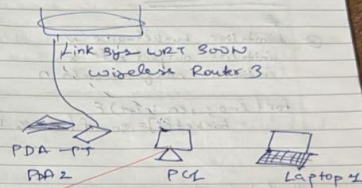 Link sys WRT 300N
wireless Router 3
PDA-PT
PDA2
PC1
Laptop 1